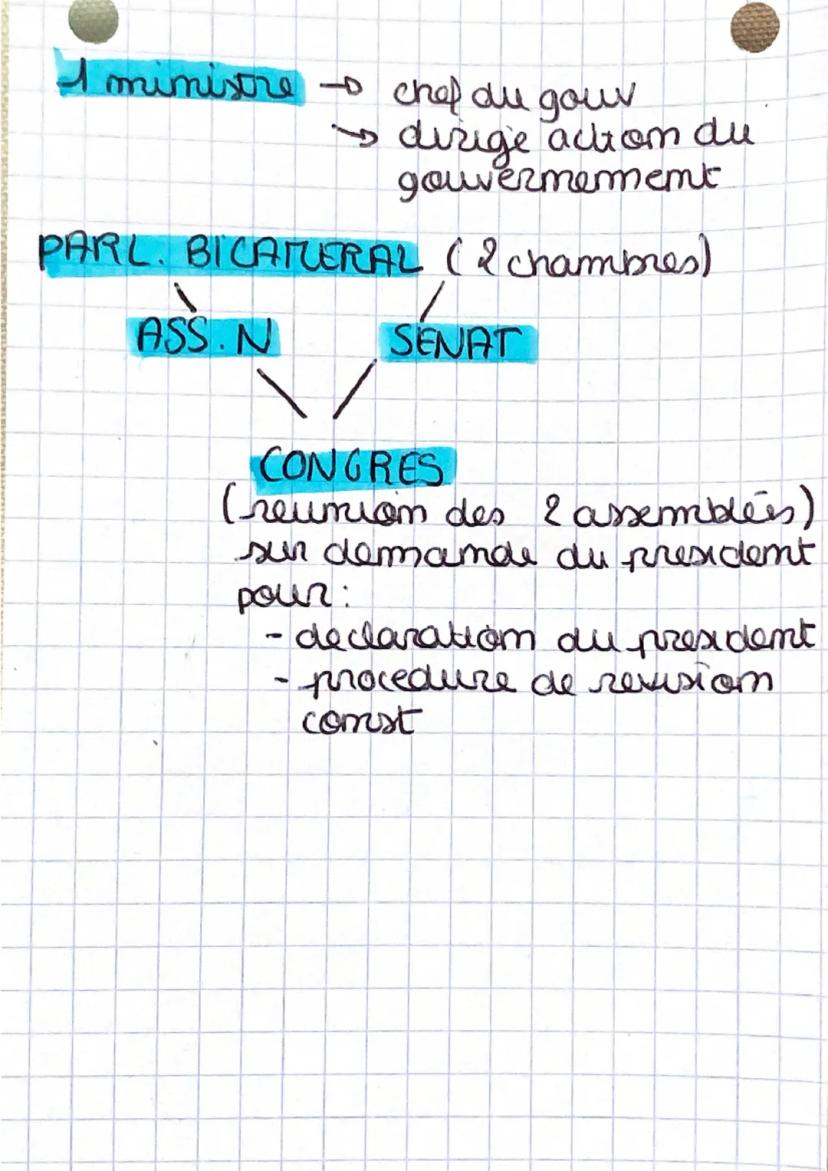 1 ministre → chef du gouv
→ dirige action du
gouvernement
PARL. BICAMERAL (2 chambres)
ASS. N SENAT
CONGRES
(reunion des 2 assemblées)
sur demande du president
pour :
- declaration du president
- procedure de revision
const